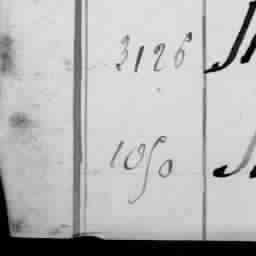 3126
1050